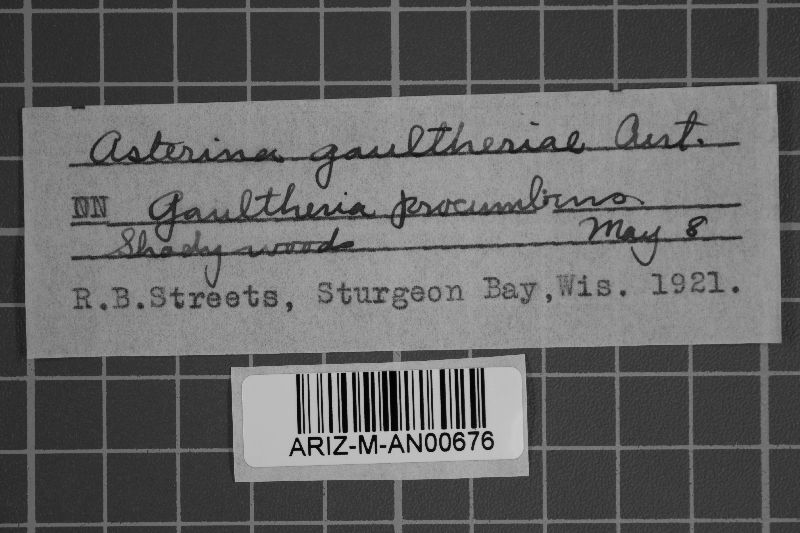 Asterina gaultheriae Aust.
NN Gaultheria procumbens
Shady woods May 8
R.B.Streets, Sturgeon Bay, Wis. 1921.
ARIZ-M-AN00676